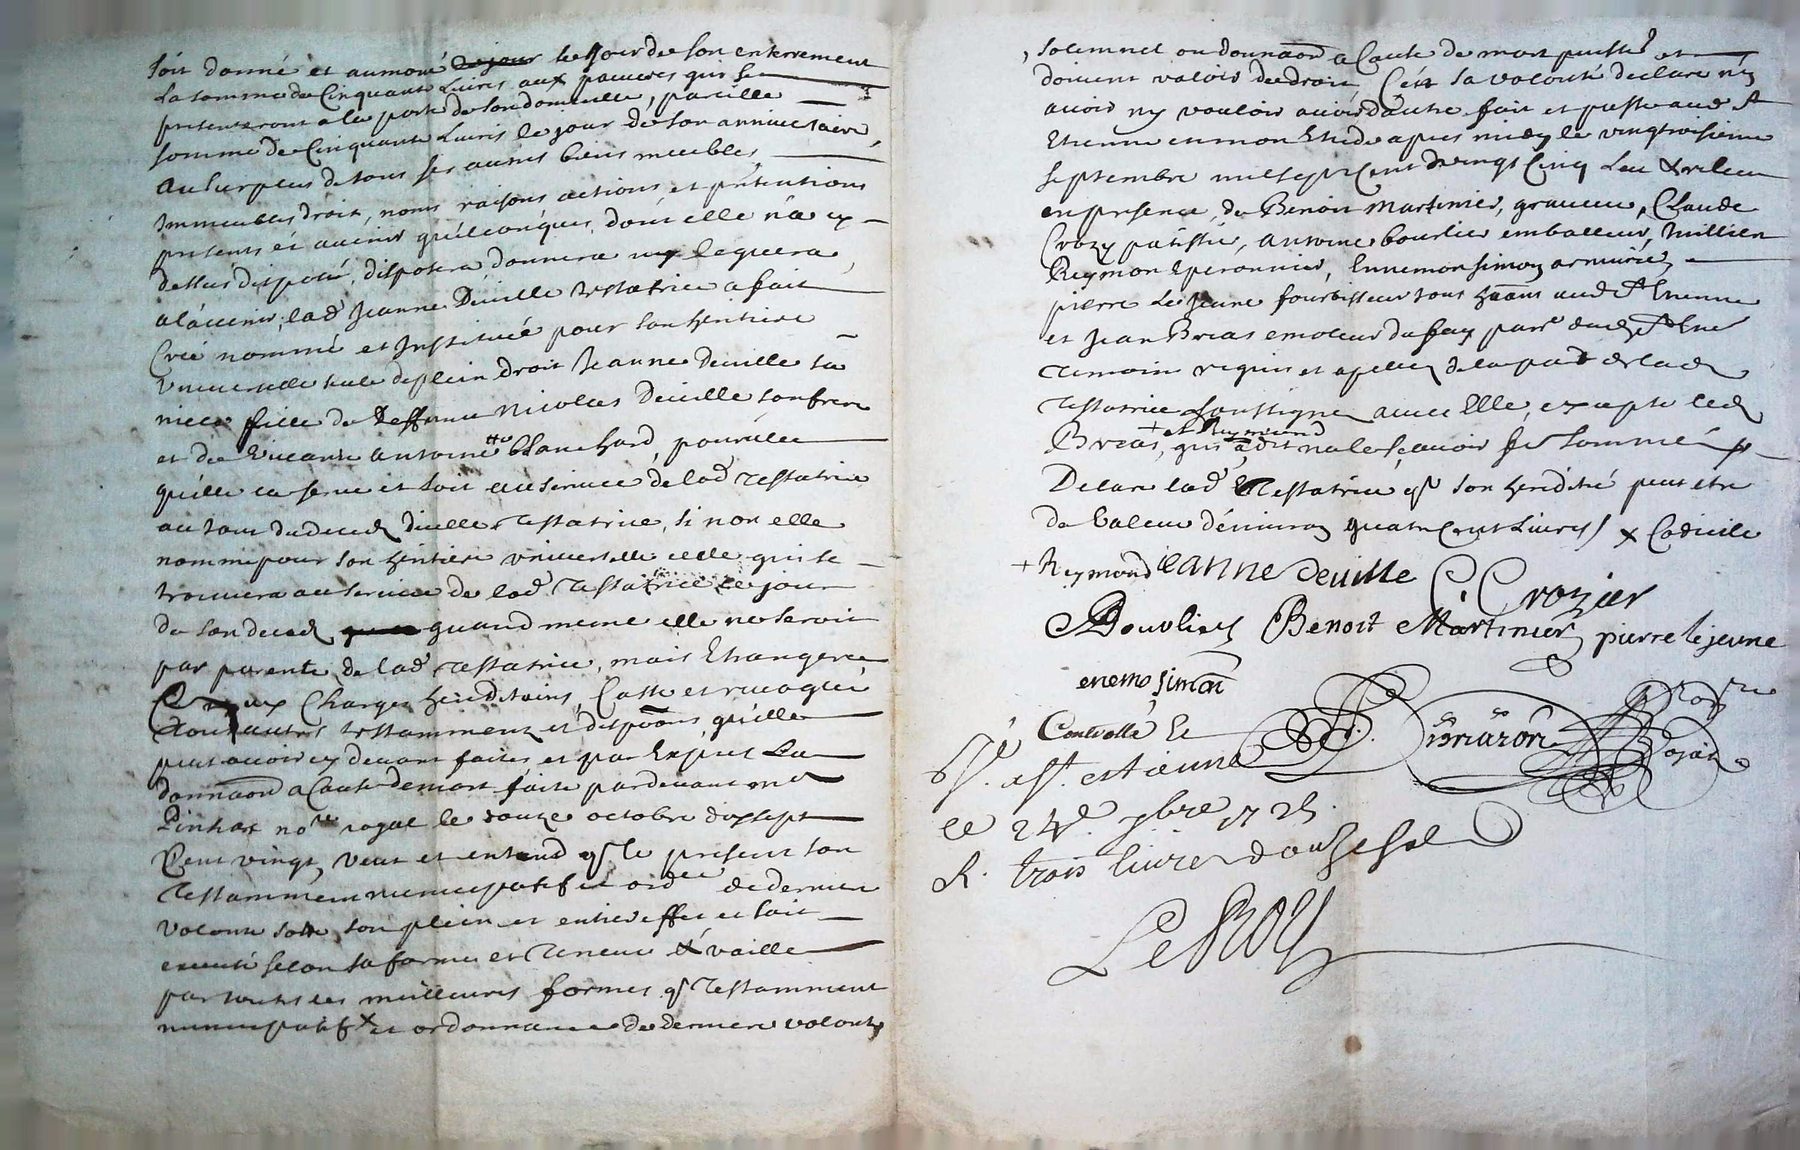 soit donné et aumoné le jour de son enterrement
la somme de Cinquante Livres aux pauvres qui se
presenteront a la porte de son domicille, pareille
somme de Cinquante Livres le jour de son anniversaire,
au surplus de tous ses autres biens meubles,
Immeubles, droits, noms raisons actions et pretentions
presents et avenir quélconques, dont elle n'a cy
dessus disposé, disposera, donnera ny leguera
a lávenir, lad. Jeanne Deville testatrice a fait
Créé nommé et Institué pour son heritiere
Universelle seule de plein droit Jeanne Deville sa
niece fille de deffunt Nicolas Deville son frere
et de vivante Antoinette Blanchard, pourvu
qu'elle la serve et soit au service de lad. testatrice
au jour du deces d'icelle testatrice, si non elle
nomme pour son heritiere universelle celle qui se
trouvera au service de lad. testatrice le jour
de son deces quand meme elle ne seroit
pas parente de lad. testatrice, mais Etrangere
aux Charges hereditaires, Casse et revoque
tous autres testamments et dispôons qu'elle
peut avoir cy devant faites et par Exprès La
donnaôn a Cause de mort faite pardevant me
Pinhar nore royal le douze octobre dix sept
Cent vingt, veut et entend q. le present son
testamment nuncupatif et ordce de derniere
volonté sorte son plein et entier effet et soit
executé selon sa forme et teneur & vaille
par toutes les meilleures formes q. testamment
nuncupatif x et ordonnance de derniere volonté
solemnel ou donnaôn a Cause de mort puisse et
doivent valoir de droit, C'ést sa volonté declare n'en
avoir ny vouloir avoir d'autre fait et passé aud. St
Etienne en mon Etude apres midy le vingtroisieme
septembre mil sept Cent vingt Cinq Leu & releu
en presence de Benoit Martinier, graveur, Claude
Crozy patissier, Antoine bourlier emballeur,
Reymon Eperonnier, Ennemon Simon armurier,
pierre Lejeune fourbisseur tous haâns aud. St. Etienne
et Jean Breas emoleur du fay parr. dud. St. Etne
temoins requis et apellés de la part de lad.
testatrice soussignés avec Elle, excepté led.
+ et Reymond
Breas, qui a dit ne le sçavoir de ce sommé
Declare lad. testatrice q. son heredité peut etre
de valeur d'environ quatre Cent Livres / x Codicile
+ Reymond jeanne deville C Crozier
A Bourlier Benoit Martinier pierre lejeune
enemo simon
Controllé Et
a St. estienne
le 24e. 7bre 1725.
R. trois livres douze sols
Le Roy